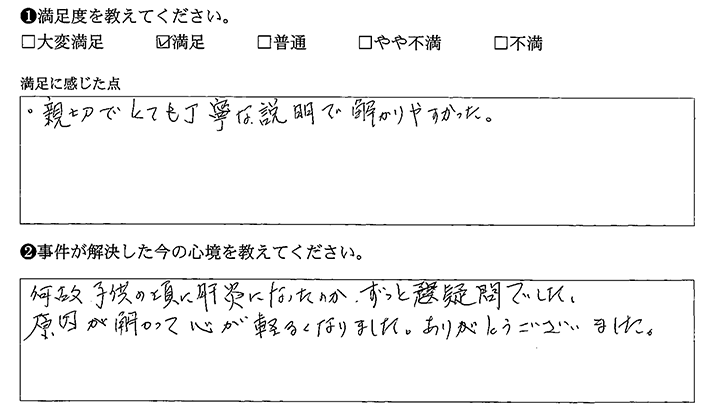 ❶満足度を教えてください。
□大変満足 ☑満足 □普通 □やや不満 □不満
満足に感じた点
・親切でとても丁寧な説明で解かりやすかった。
❷事件が解決した今の心境を教えてください。
何故子供の頃に肝炎になったのか、ずっと疑問でした、
原因が解かって心が軽るくなりました。ありがとうございました。